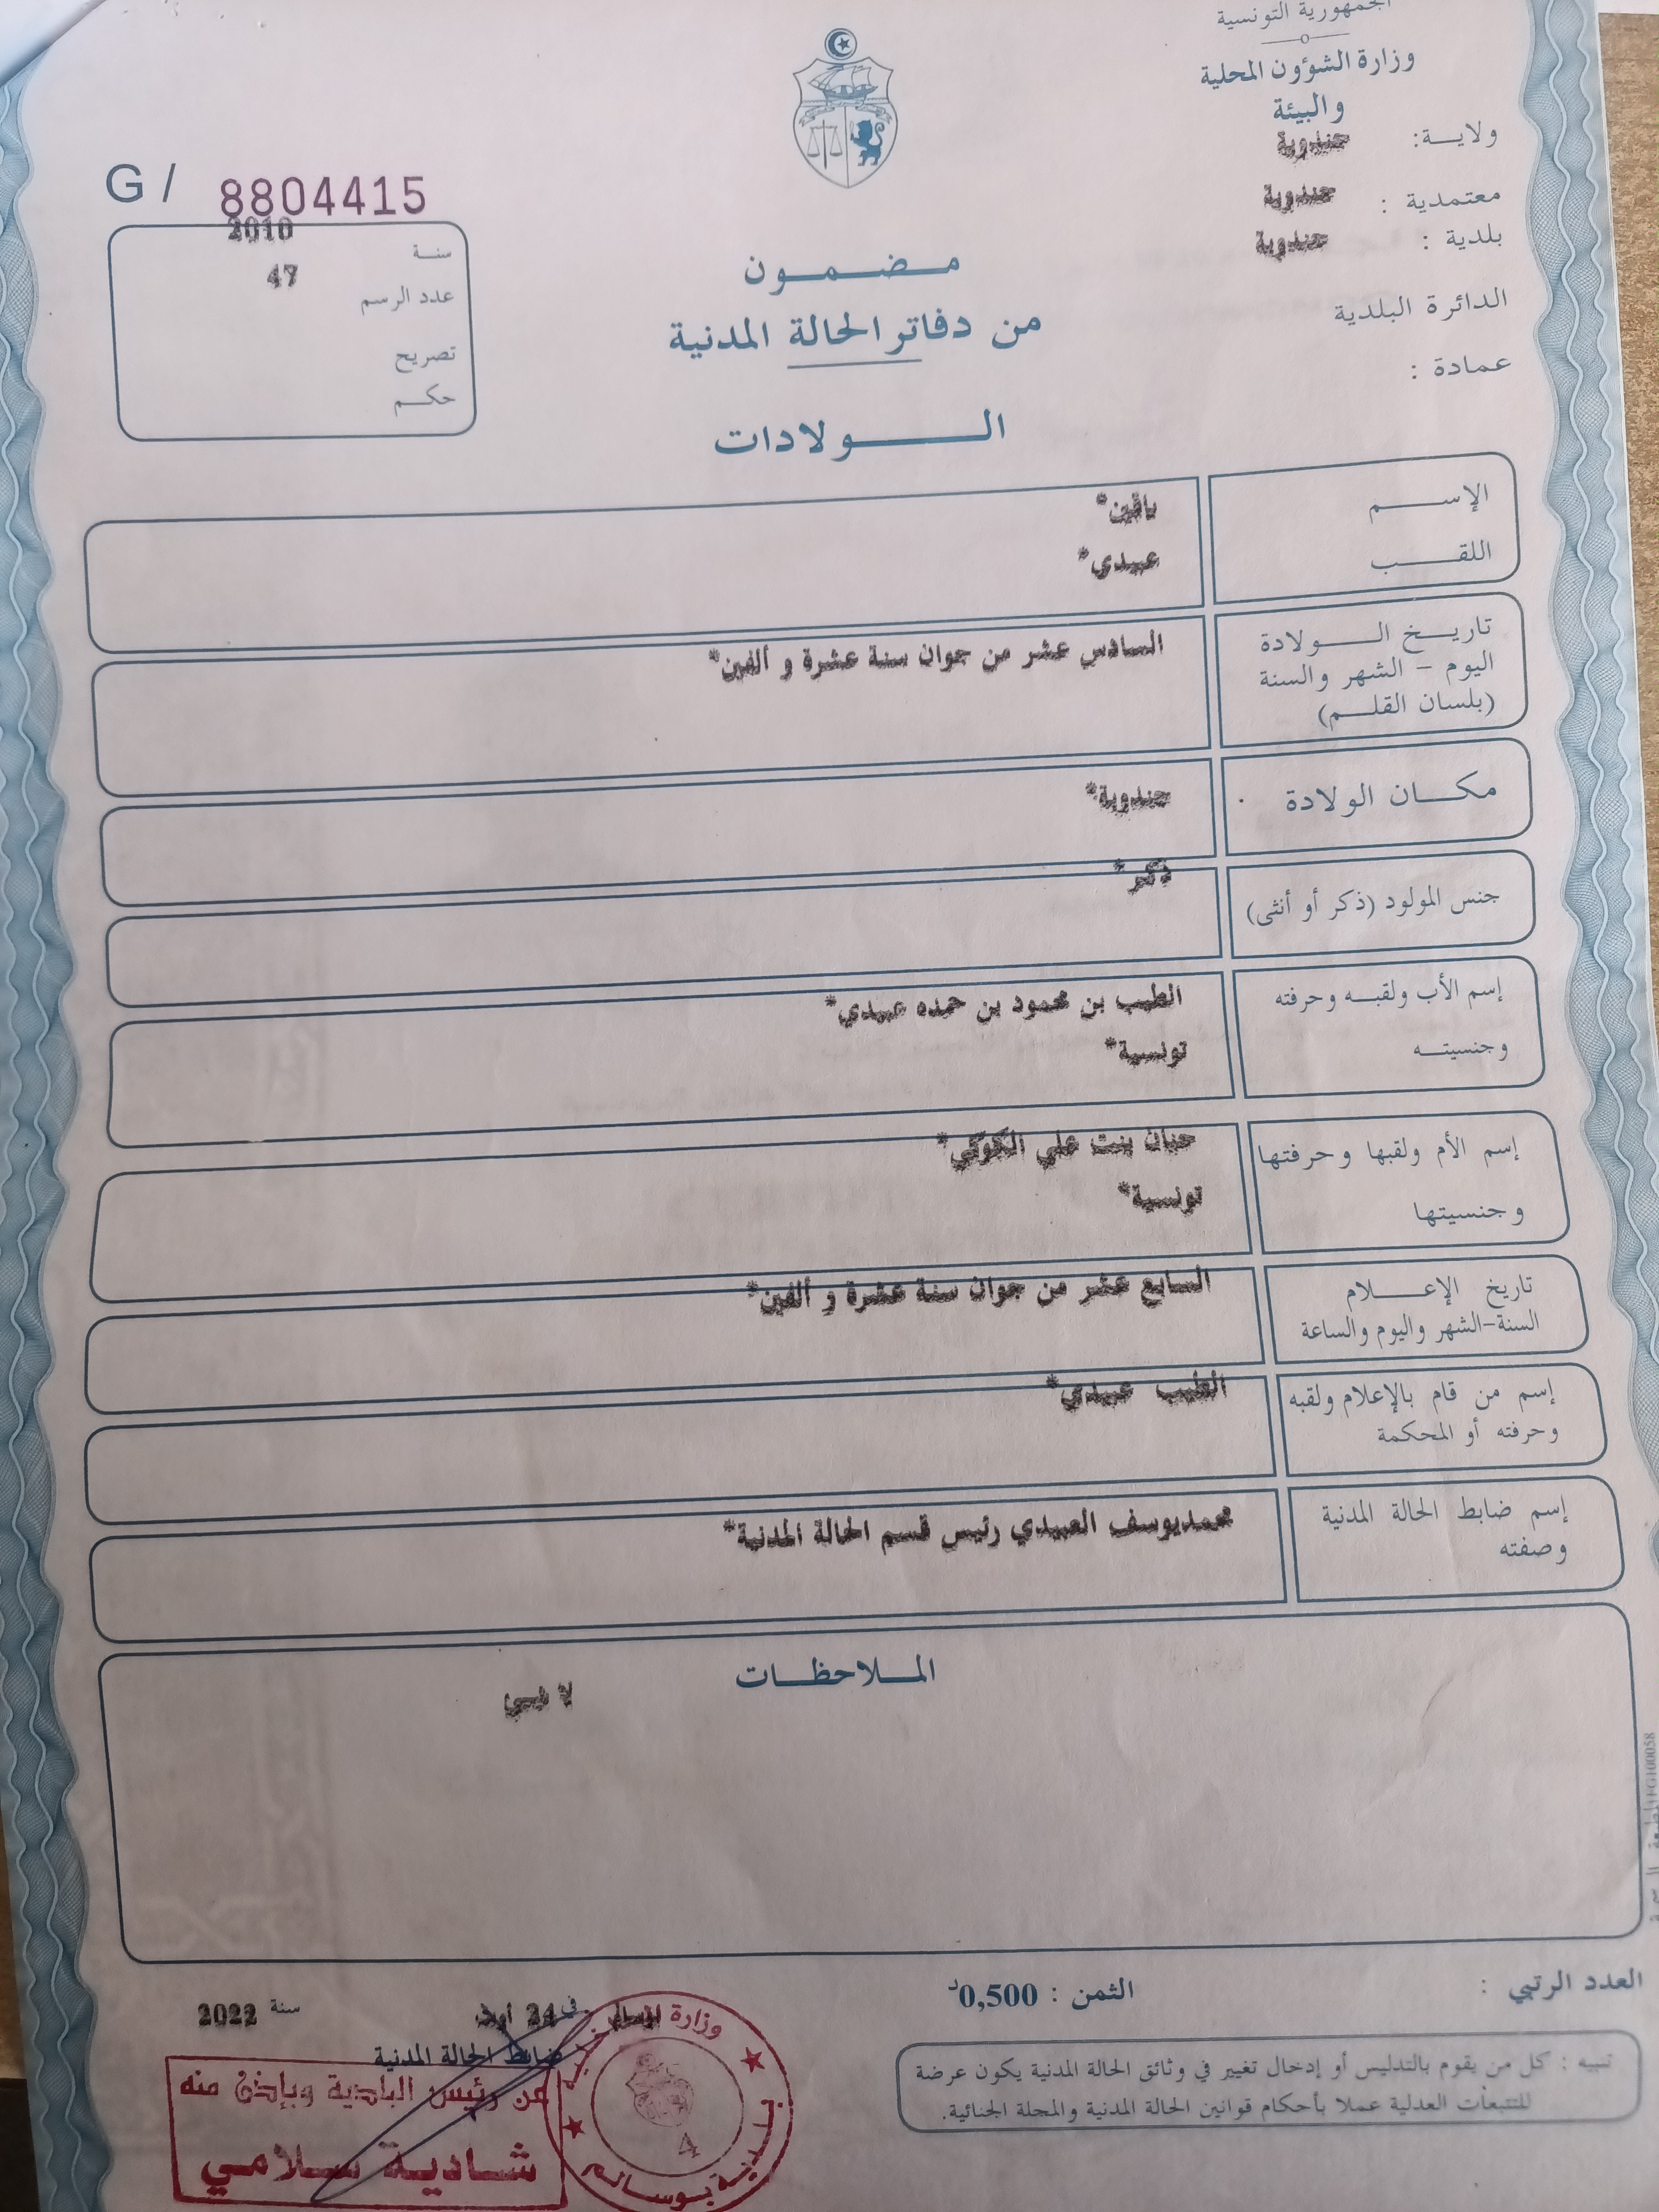 الجمهورية التونسية
وزارة الشؤون المحلية
والبيئة
ولاية: جندوبة
معتمدية : جندوبة
بلدية : جندوبة
الدائرة البلدية
عمادة :
G / 8804415
سنة 2010
عدد الرسم 47
تصريح
حكم
مضمون
من دفاتر الحالة المدنية
الولادات
الإسم
يافين*
اللقب عبيدي*
تاريخ الولادة السادس عشر من جوان سنة عشرة و ألفين*
اليوم - الشهر والسنة
(بلسان القلم)
مكان الولادة جندوبة*
جنس المولود (ذكر أو أنثى) ذكر*
إسم الأب ولقبه وحرفته الطيب بن محمود بن حمده عبيدي*
وجنسيته تونسية*
إسم الأم ولقبها وحرفتها حنان بنت علي الكوكي*
وجنسيتها تونسية*
تاريخ الإعلام السابع عشر من جوان سنة عشرة و ألفين*
السنة-الشهر واليوم والساعة
إسم من قام بالإعلام ولقبه الطيب عبيدي*
وحرفته أو المحكمة
إسم ضابط الحالة المدنية محمديوسف العبيدي رئيس قسم الحالة المدنية*
وصفته
الملاحظات
لا شيئ
العدد الرتبي :
الثمن : 0,500د
في 24 أوت سنة 2022
ضابط الحالة المدنية
عن رئيس البلدية وبإذن منه
شادية سلامي
وزارة
بلدية بوسالم
4
تنبيه : كل من يقوم بالتدليس أو إدخال تغيير في وثائق الحالة المدنية يكون عرضة
للتتبعات العدلية عملا بأحكام قوانين الحالة المدنية والمجلة الجنائية.